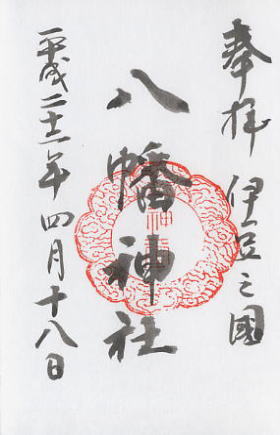 奉拝 伊豆之國
八幡神社
平成二十二年四月十八日